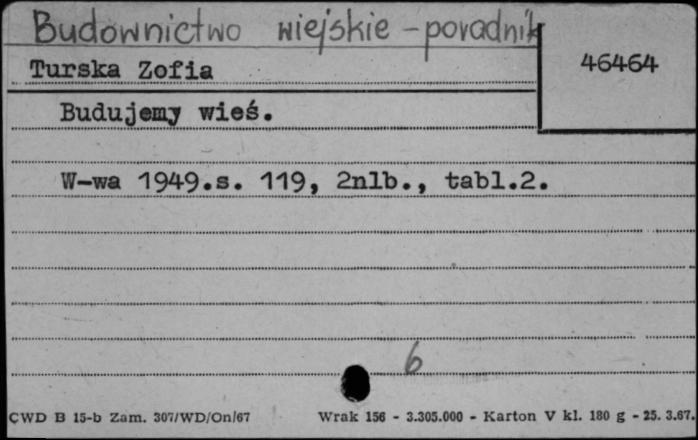 Budownictwo wiejskie - poradnik
46464
Turska Zofia
Budujemy wieś.
W-wa 1949.s. 119, 2nlb., tabl.2.
6
CWD B 15-b Zam. 307/WD/On/67 Wrak 156 - 3.305.000 - Karton V kl. 180 g - 25. 3.67.